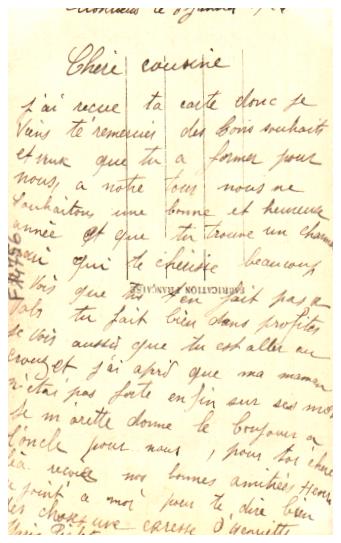 le janvier
Chere cousine
j'ai recue ta carte donc je
viens te remercier des bons souhaits
et vœux que tu a former pour
nous, a notre tour nous ne
souhaitons une bonne et heureuse
annee et que tu trouve un charmant
mari qui te chérisse beaucoup
Je vois que tu t'en fait pas a
bals tu fait bien dans profiter
je vois aussi que tu est aller au
et j'ai apris que ma maman
n'étai pas forte enfin sur ses
Je m'arette donne le bonjour a
l'oncle pour nous, pour toi chere
Léa recoie nos bonnes amitiées Henri
se joint a moi pour te dire bien
des choses une caresse d'Henriette
FABRICATION FRANÇAISE